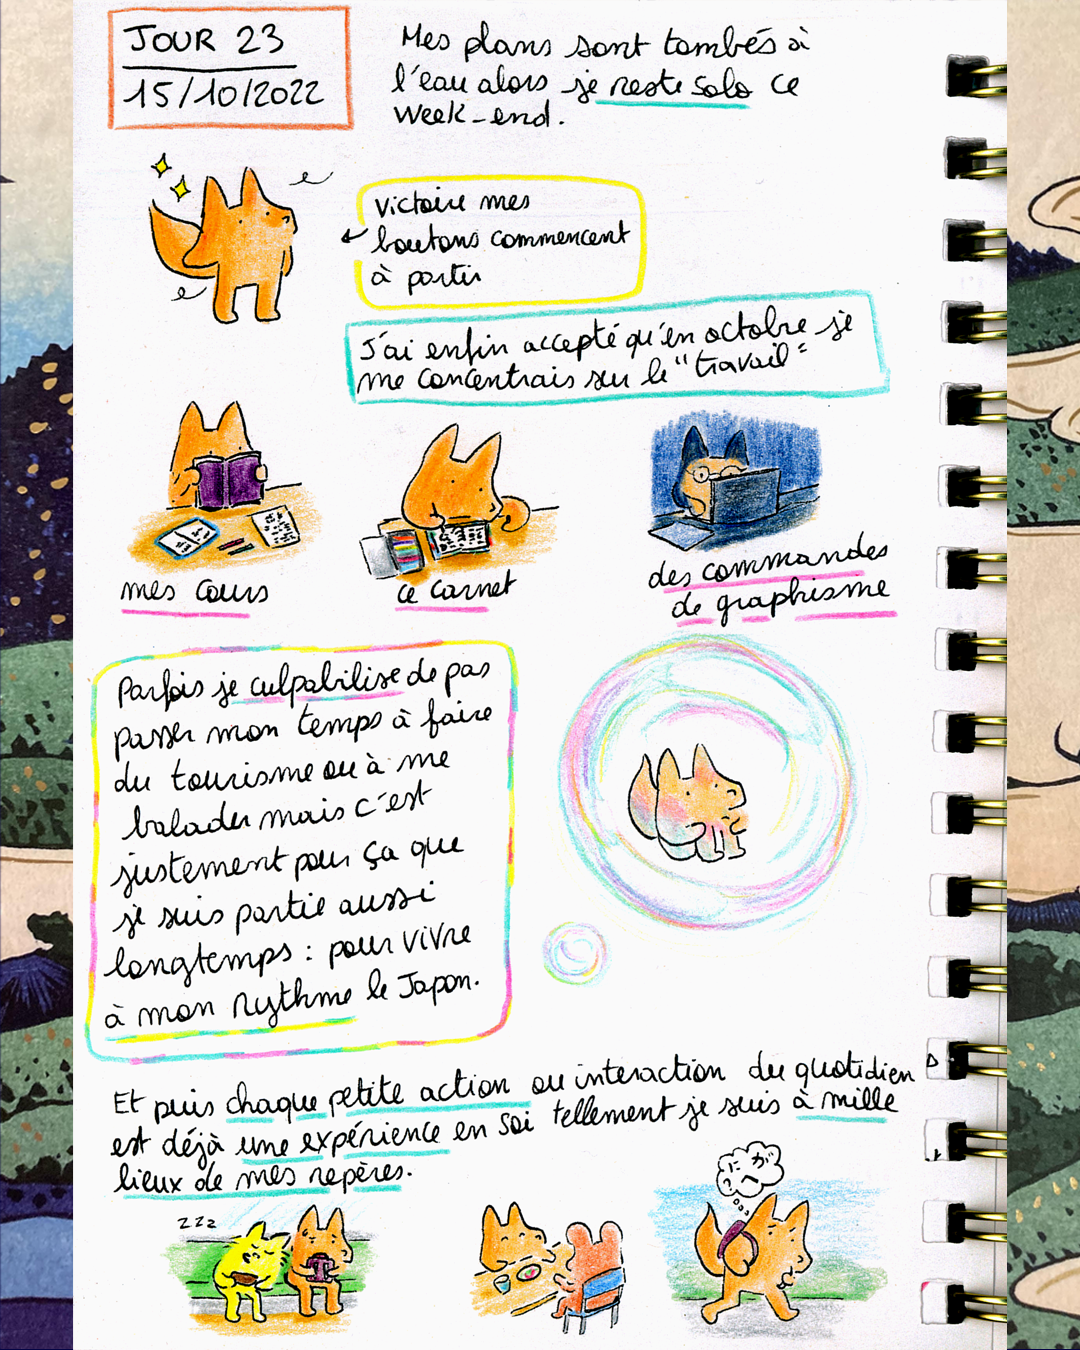 JOUR 23
15/10/2022
Mes plans sont tombés à
l'eau alors je reste solo ce
week-end.
Victoire mes
boutons commencent
à partir
J'ai enfin accepté qu'en octobre je
me concentrais sur le "travail"
mes cours
ce carnet
des commandes
de graphisme
Parfois je culpabilise de pas
passer mon temps à faire
du tourisme ou à me
balader mais c'est
justement pour ça que
je suis partie aussi
longtemps : pour vivre
à mon rythme le Japon.
Et puis chaque petite action ou interaction du quotidien
est déjà une expérience en soi tellement je suis à mille
lieux de mes repères.
zzz